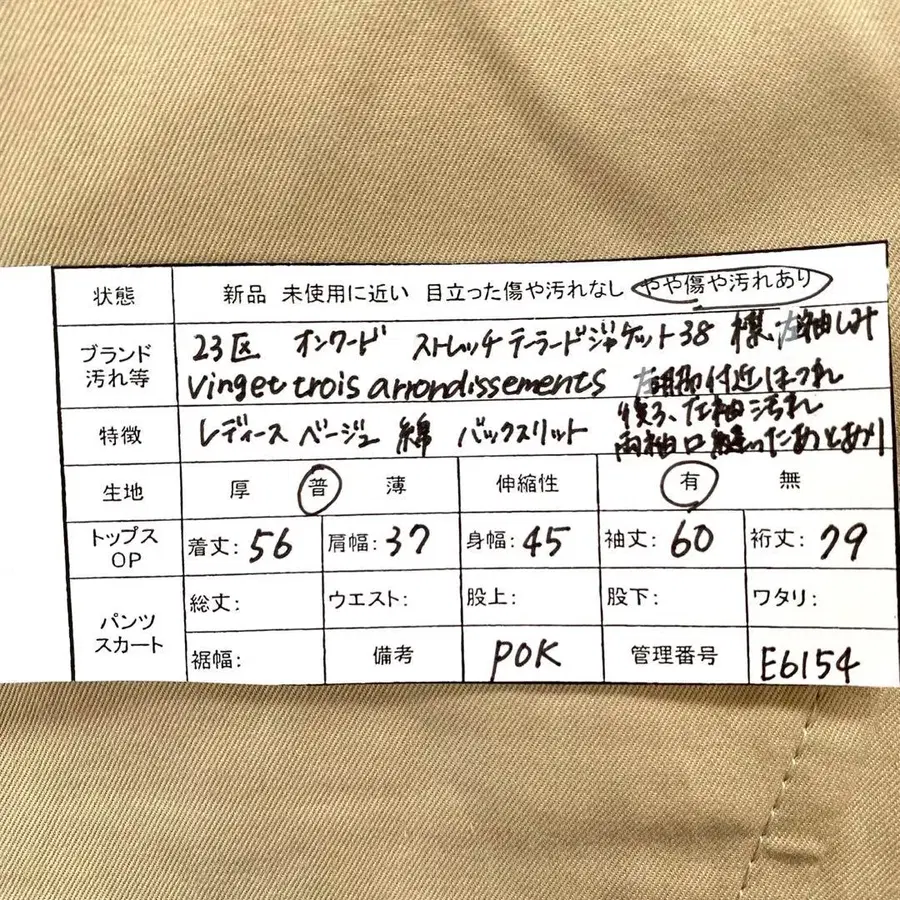 状態 新品 未使用に近い 目立った傷や汚れなし やや傷や汚れあり
ブランド 23区 オンワード ストレッチテーラードジャケット38 襟、左袖しみ
汚れ等 vinget trois arrondissements 付近ほつれ
後ろ、左袖汚れ
特徴 レディース ベージュ 綿 バックスリット 両袖口縫ったあとあり
生地 厚 普 薄 伸縮性 有 無
トップス OP 着丈: 56 肩幅: 37 身幅: 45 袖丈: 60 裄丈: 79
パンツ スカート 総丈: ウエスト: 股上: 股下: ワタリ:
裾幅: 備考 POK 管理番号 E6154